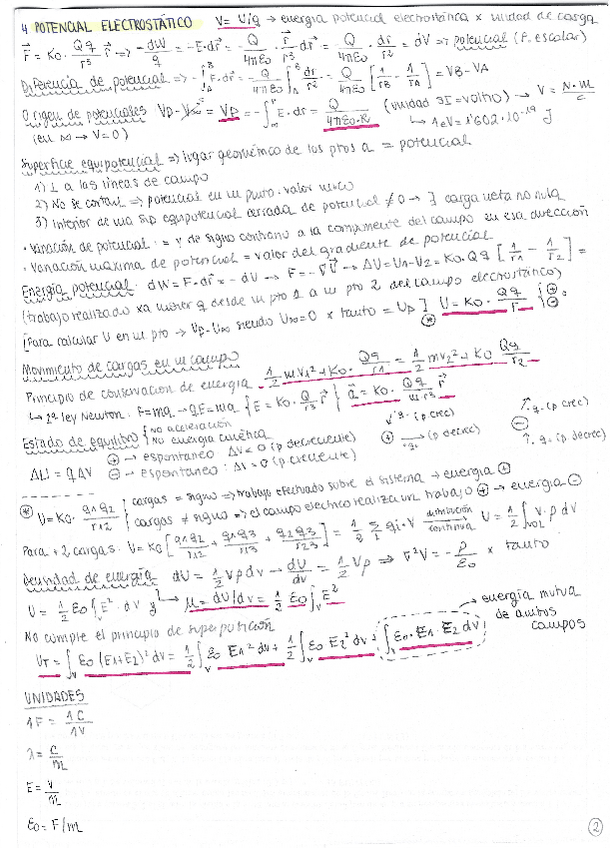 4 POTENCIAL ELECTROSTÁTICO V = U/q → energía potencial electrostática x unidad de carga
F⃗ = K0 · Qq/r³ · r⃗ => -dW/q = -E·dr⃗ = -Q/4πε0 · r⃗/r³ · dr⃗ = -Q/4πε0 · dr/r² = dV => potencial (f. escolar)
Diferencia de potencial => -∫_A^B E·dr⃗ = -Q/4πε0 ∫_A^B dr/r² = Q/4πε0 [1/rB - 1/rA] = VB - VA
Origen de potenciales VP - V∞ = VP = -∫_∞^r E·dr = Q/4πε0·R (unidad SI = voltio) → V = N·m/C
(en ∞ → V=0) ↳ 1eV = 1'602·10⁻¹⁹ J
Superficie equipotencial => lugar geométrico de los ptos a = potencial
1) ⊥ a las líneas de campo
2) No se cortan => potencial en un punto: valor único
3) Interior de una sup equipotencial cerrada de potencial ≠ 0 → ∃ carga neta no nula
· Variación de potencial: = y de signo contrario a la componente del campo en esa dirección
· Variación máxima de potencial = valor del gradiente de potencial
Energía potencial: dW = F·dr = -dU → F = -∇⃗U → ΔU = U1 - U2 = K0·Qq [1/r1 - 1/r2] =
(trabajo realizado xa mover q desde un pto 1 a un pto 2 del campo electrostático)
[Para calcular U en un pto → UP - U∞ siendo U∞=0 x tanto = UP] U = K0 · Qq/r
Movimiento de cargas en un campo
Principio de conservación de energía 1/2 mv1² + K0 Qq/r1 = 1/2 mv2² + K0 Qq/r2
↳ 2ª ley Newton: F=ma → qE=ma {E = K0·Q/r³ r⃗} a⃗ = K0·Qq/m·r³ r⃗
Estado de equilibrio {No aceleración
No energía cinética
⊕ → espontáneo: ΔV<0 (p decreciente)
ΔU = qΔV ⊖ → espontáneo: ΔV>0 (p creciente)
q⁻ (p crec)
⊕ → (p decrec)
q⁺
↑ q⁻ (p crec)
⊖
↑ q⁻ (p decrec)
⊛ U = K0 · q1q2/r12 {cargas = signo => trabajo efectuado sobre el sistema → energía ⊕
cargas ≠ signo => el campo eléctrico realiza un trabajo ⊕ → energía ⊖
Para +2 cargas: U = K0 [q1q2/r12 + q1q3/r13 + q2q3/r23] = 1/2 Σ qi·V distribución continua U = 1/2 ∫_VOL V·ρ dV
Densidad de energía dU = 1/2 Vρdv → dU/dv = 1/2 Vρ => ∇²V = -ρ/ε0 x tanto
U = 1/2 ε0 ∫_V E²·dV } → μ = dU/dv = 1/2 ε0 ∫_V E²
No cumple el principio de superposición
UT = ∫_V ε0 (E1+E2)² dv = 1/2 ∫_V ε0 E1² dv + 1/2 ∫_V ε0 E2² dv + ∫_V ε0·E1·E2 dv → energía mutua de ambos campos
UNIDADES
1F = 1C/1V
λ = C/m
E = V/m
ε0 = F/m
2